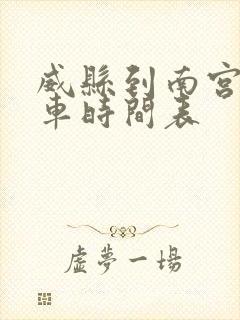 威縣到南宮
車時間表
虛夢一場